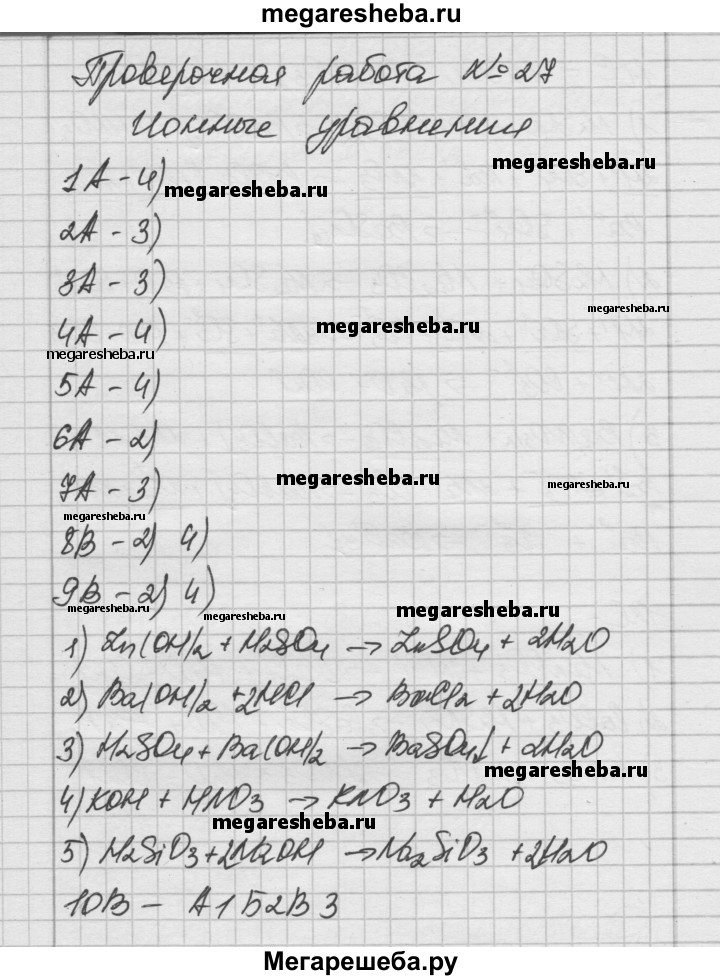 megaresheba.ru
Проверочная работа №27
Ионные уравнения
megaresheba.ru
1А - 4) megaresheba.ru
2А - 3)
3А - 3)
megaresheba.ru
4А - 4) megaresheba.ru
megaresheba.ru
5А - 4)
6А - 2)
7А - 3) megaresheba.ru
megaresheba.ru
megaresheba.ru
8В - 2) 4)
9В - 2) 4)
megaresheba.ru megaresheba.ru megaresheba.ru
1) Zn(OH)2 + H2SO4 → ZnSO4 + 2H2O
2) Ba(OH)2 + 2HCl → BaCl2 + 2H2O
3) H2SO4 + Ba(OH)2 → BaSO4↓ + 2H2O
megaresheba.ru
4) KOH + HNO3 → KNO3 + H2O
megaresheba.ru
5) H2SiO3 + 2NaOH → Na2SiO3 + 2H2O
10В - А1Б2В3
Мегарешеба.ру